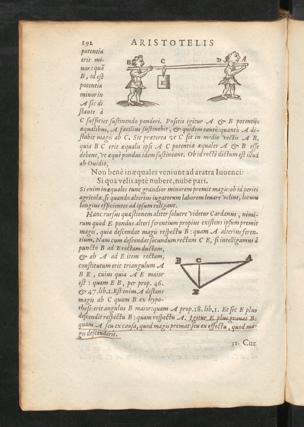 192 ARISTOTELIS
potentia
erit mi-
nor: quā
B, id est
potentia
minor in
A sic di
stante à
B C D A
E
C sufficiet sustinendo ponderi. Positis igitur A & B potentijs
æqualibus, A facilius sustinebit, & quidem tanto: quanto A di-
stabit magis ab C. Sit præterea ut C sit in medio rectæ A B,
quia B C erit æqualis ipsi A C potentia æqualis A & B esse
debent, ut æquè pondus idem sustineant. Ob id rectè dictum est illud
ab Ouidio.
Non bene inæquales veniunt ad aratra iuuenci:
Si qua velis aptè nubere, nube pari.
Si enim inæquales tunc grandior minorem premit magis: ob id periti
agricolæ, si quando alterius iugatorem laborem leuare velint, locum
longius efficientes ad ipsum religant.
Hanc rursus quæstionem aliter soluere videtur Cardanus, nimi-
rum quod E pondus alteri ferentium propius existens ipsum premit
magis, quia descendat magis respectu B: quam A alterius feren-
tium. Nam cum descendat secundum rectam C E, si intelligamus à
puncto B ad E rectam ductam,
& ab A ad E item rectam,
constitutum erit triangulum A
B E, cuius quia A E maior
est: quam E B, per prop. 46.
& 47. lib. 1. Est enim A distans
magis ab C quam B ex hypo-
thesi: erit angulus B maior: quam A prop. 18. lib. 1. Et sic E plus
descendit respectu B: quam respectu A. Igitur E plus premat B:
quam A seu ex causa, quod magis premat seu ex effectu, quod ma-
gis descenderit.
B C A
E
31. Cur